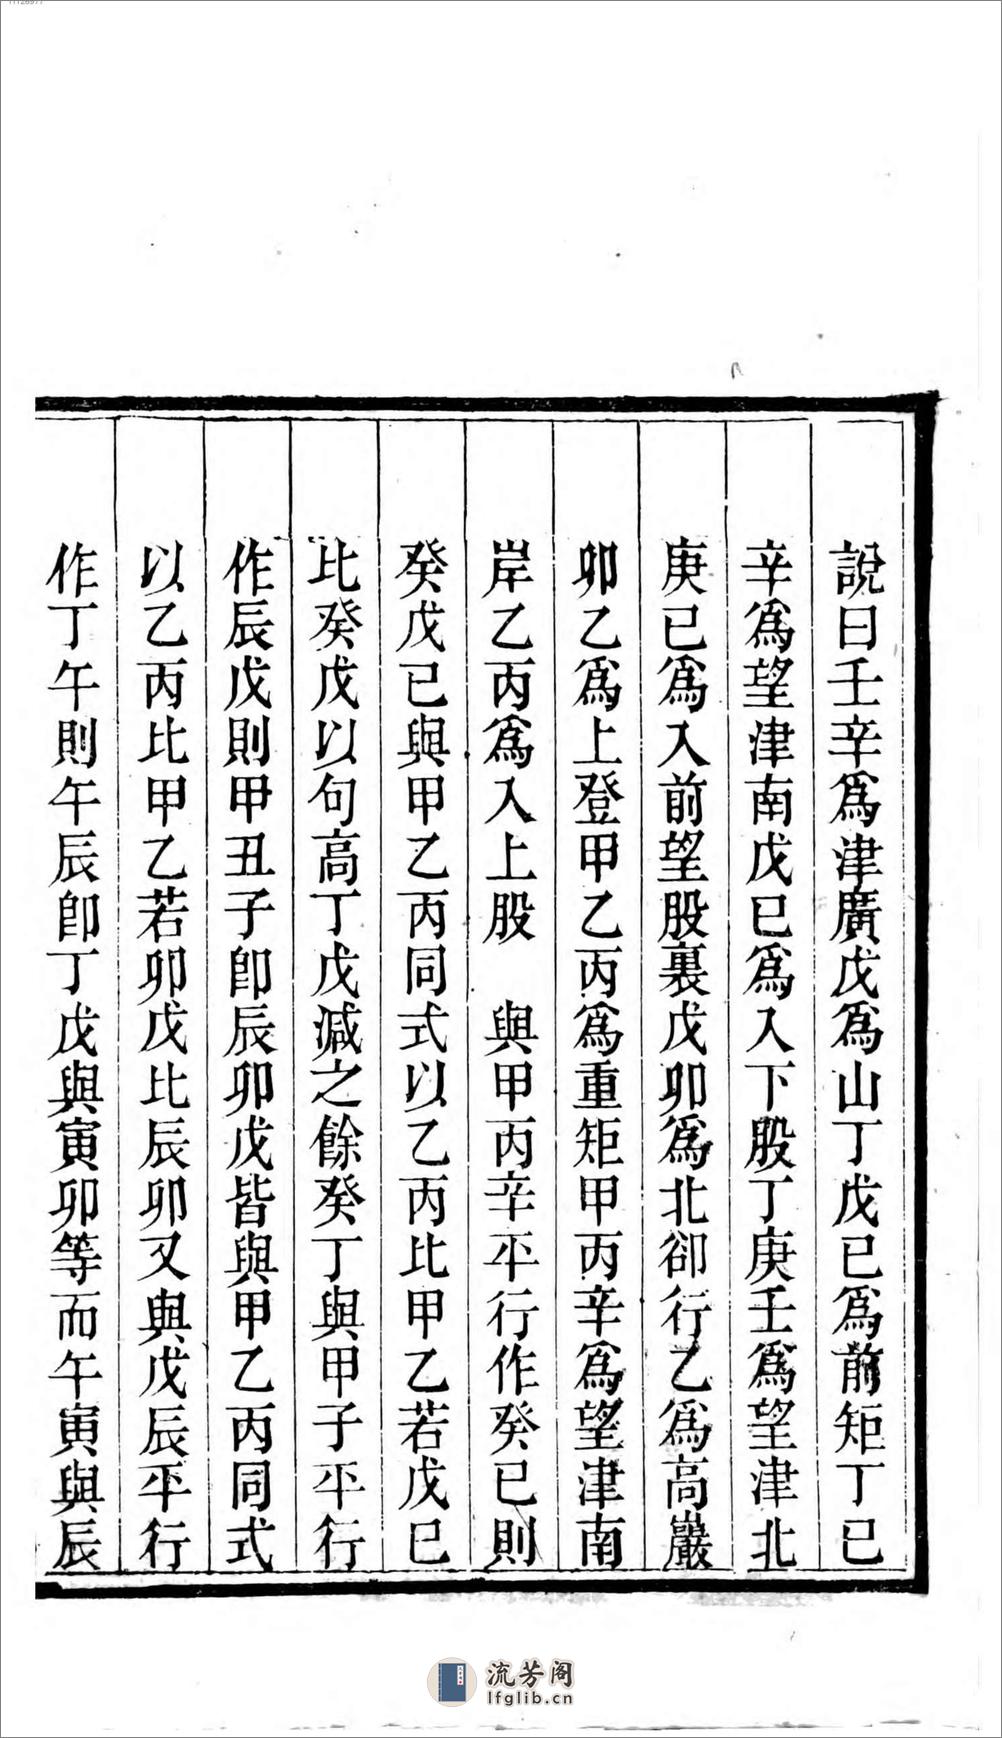 說曰壬辛爲津廣戊爲山丁戊已爲前矩丁已
辛爲望津南戊已爲入下股丁庚壬爲望津北
庚已爲入前望股裏戊卯爲北卻行乙爲高巖
卯乙爲上登甲乙丙爲重矩甲丙辛爲望津南
岸乙丙爲入上股　與甲丙辛平行作癸已則
癸戊已與甲乙丙同式以乙丙比甲乙若戊已
比癸戊以句高丁戊減之餘癸丁與甲子平行
作辰戊則甲丑子卽辰卯戊皆與甲乙丙同式
以乙丙比甲乙若卯戊比辰卯又與戊辰平行
作丁午則午辰卽丁戊與寅卯等而午寅與辰
流芳阁
lfglib.cn